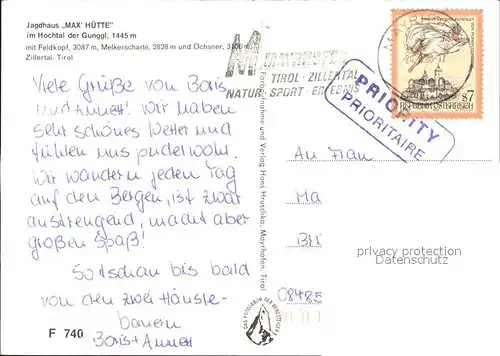 Jagdhaus „MAX' HÜTTE"
im Hochtal der Gunggl, 1445 m
mit Feldkopf, 3087 m, Melkerscharte, 2828 m und Ochsner, 3106 m,
Zillertal, Tirol
Viele Grüße von Boris
und Annett! Wir haben
sehr schönes Wetter und
fühlen uns pudelwohl.
Wir wandern jeden Tag
auf den Bergen, ist zwar
anstrengend, macht aber
großen Spaß!
So tschau bis bald
von den zwei Häusle-
bauern
Boris+Annett
F 740
MAYRHOFEN
TIROL · ZILLERTAL
NATUR · SPORT · ERLEBNIS
Fotoaufnahme und Verlag Hans Hruschka, Mayrhofen, Tirol
DAS FOTOLABOR DER BERGSTEIGER
PRIORITY
PRIORITAIRE
S7
REPUBLIK ÖSTERREICH
An Frau
Ma
privacy protected
Datenschutz